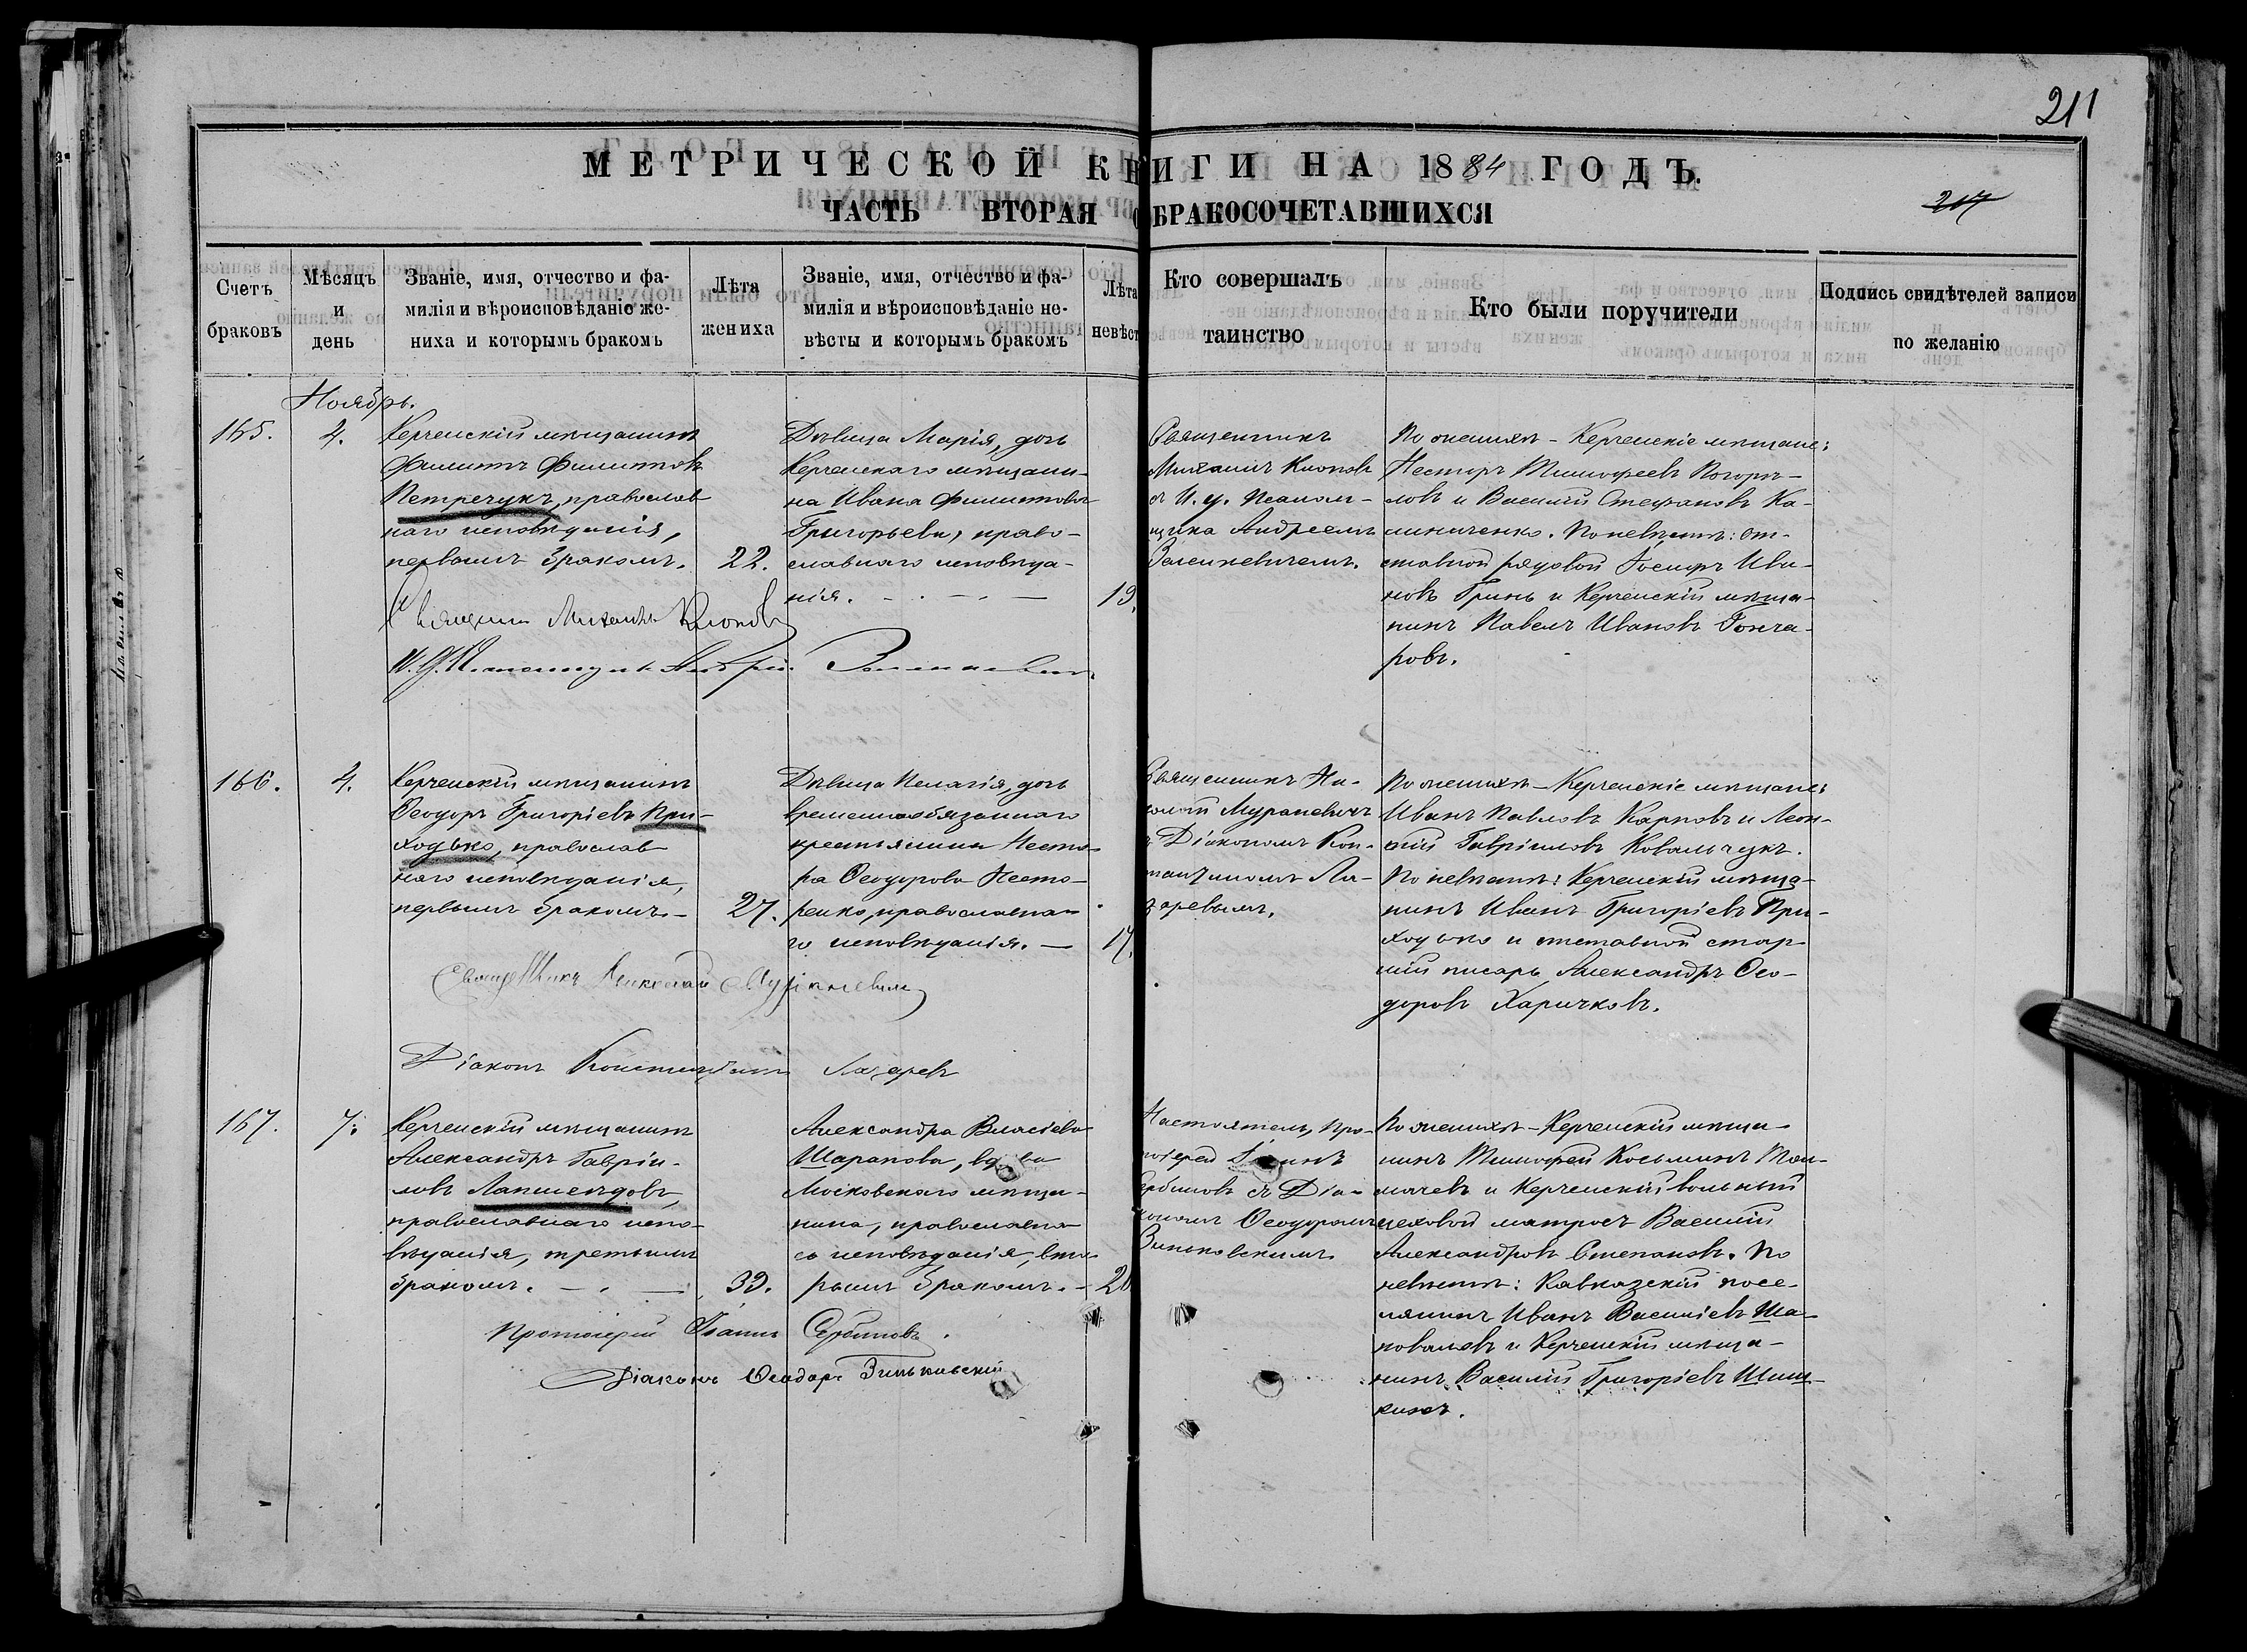 211
МЕТРИЧЕСКОЙ КНИГИ НА 1884 ГОДЪ.
ЧАСТЬ ВТОРАЯ О БРАКОСОЧЕТАВШИХСЯ
217
Счетъ браковъ
Мѣсяцъ и день
Званіе, имя, отчество и фа-
милія и вѣроисповѣданіе же-
ниха и которымъ бракомъ
Лѣта
жениха
Званіе, имя, отчество и фа-
милія и вѣроисповѣданіе не-
вѣсты и которымъ бракомъ
Лѣта
невѣст
Кто совершалъ
таинство
Кто были поручители
Подпись свидѣтелей записи
по желанію
Ноябрь.
165.
4.
Керченскій мѣщанинъ
Филиппъ Филипповъ
Петречукъ, православ
наго исповѣданія,
первымъ бракомъ.
22.
Дѣвица Марія, дочь
Керченскаго мѣщани-
на Ивана Филиппова
Григорьева, право-
славнаго исповѣда-
нія.
19.
Священникъ
Михаилъ Клоповъ
съ И. д. псалом-
щика Андреемъ
По женихѣ - Керченскіе мѣщане:
Несторъ Тимофеевъ Погорѣ-
ловъ и Василій Стефановъ Ка-
линиченко. По невѣстѣ: от-
ставной рядовой Іосифъ Ива-
новъ Гринь и Керченскій мѣща-
нинъ Павелъ Ивановъ Гонча-
ровъ.
Священникъ Михаилъ Клоповъ
И. Д. Псаломщика Андрей
166.
4.
Керченскій мѣщанинъ
Ѳеодоръ Григоріевъ При-
ходько, православ
наго исповѣданія,
первымъ бракомъ.-
27.
Дѣвица Пелагія, дочь
временнообязаннаго
крестьянина Несто-
ра Ѳеодорова Несте-
ренко, православна-
го исповѣданія. -
17.
Священникъ Ни-
колай Мураневичъ
съ Діакономъ Кон-
стантиномъ Ла-
заревымъ.
По женихѣ - Керченскіе мѣщане:
Иванъ Павловъ Карповъ и Леон-
тій Гавріиловъ Ковальчукъ.
По невѣстѣ: Керченскій мѣща-
нинъ Иванъ Григоріевъ При-
ходько и отставной стар-
шій писарь Александръ Ѳео-
доровъ Харичковъ.
Священникъ Николай Мураневичъ
Діаконъ Константинъ Лазаревъ
167.
7.
Керченскій мѣщанинъ
Александръ Гавріи-
ловъ Лапшендовъ,
православнаго испо-
вѣданія, третьимъ
бракомъ.
39.
Александра Власіева
Шарапова, вдова
Московскаго мѣща-
нина, православна-
го исповѣданія, вто-
рымъ бракомъ. -
20
Настоятель, про-
тоіерей Іоаннъ
Сербиновъ съ Діа-
кономъ Ѳеодоромъ
Зиньковскимъ
По женихѣ - Керченскій мѣща-
нинъ Тимофей Косьминъ Тол-
мачевъ и Керченскій вольный
цеховой матросъ Василій
Александровъ Степановъ. По
невѣстѣ: Кавказскій посе-
лянинъ Иванъ Василіевъ Ша-
поваловъ и Керченскій мѣща-
нинъ Василій Григоріевъ Шиш-
кинъ.
Протоіерей Іоаннъ Сербиновъ.
Діаконъ Ѳеодоръ Зиньковскій